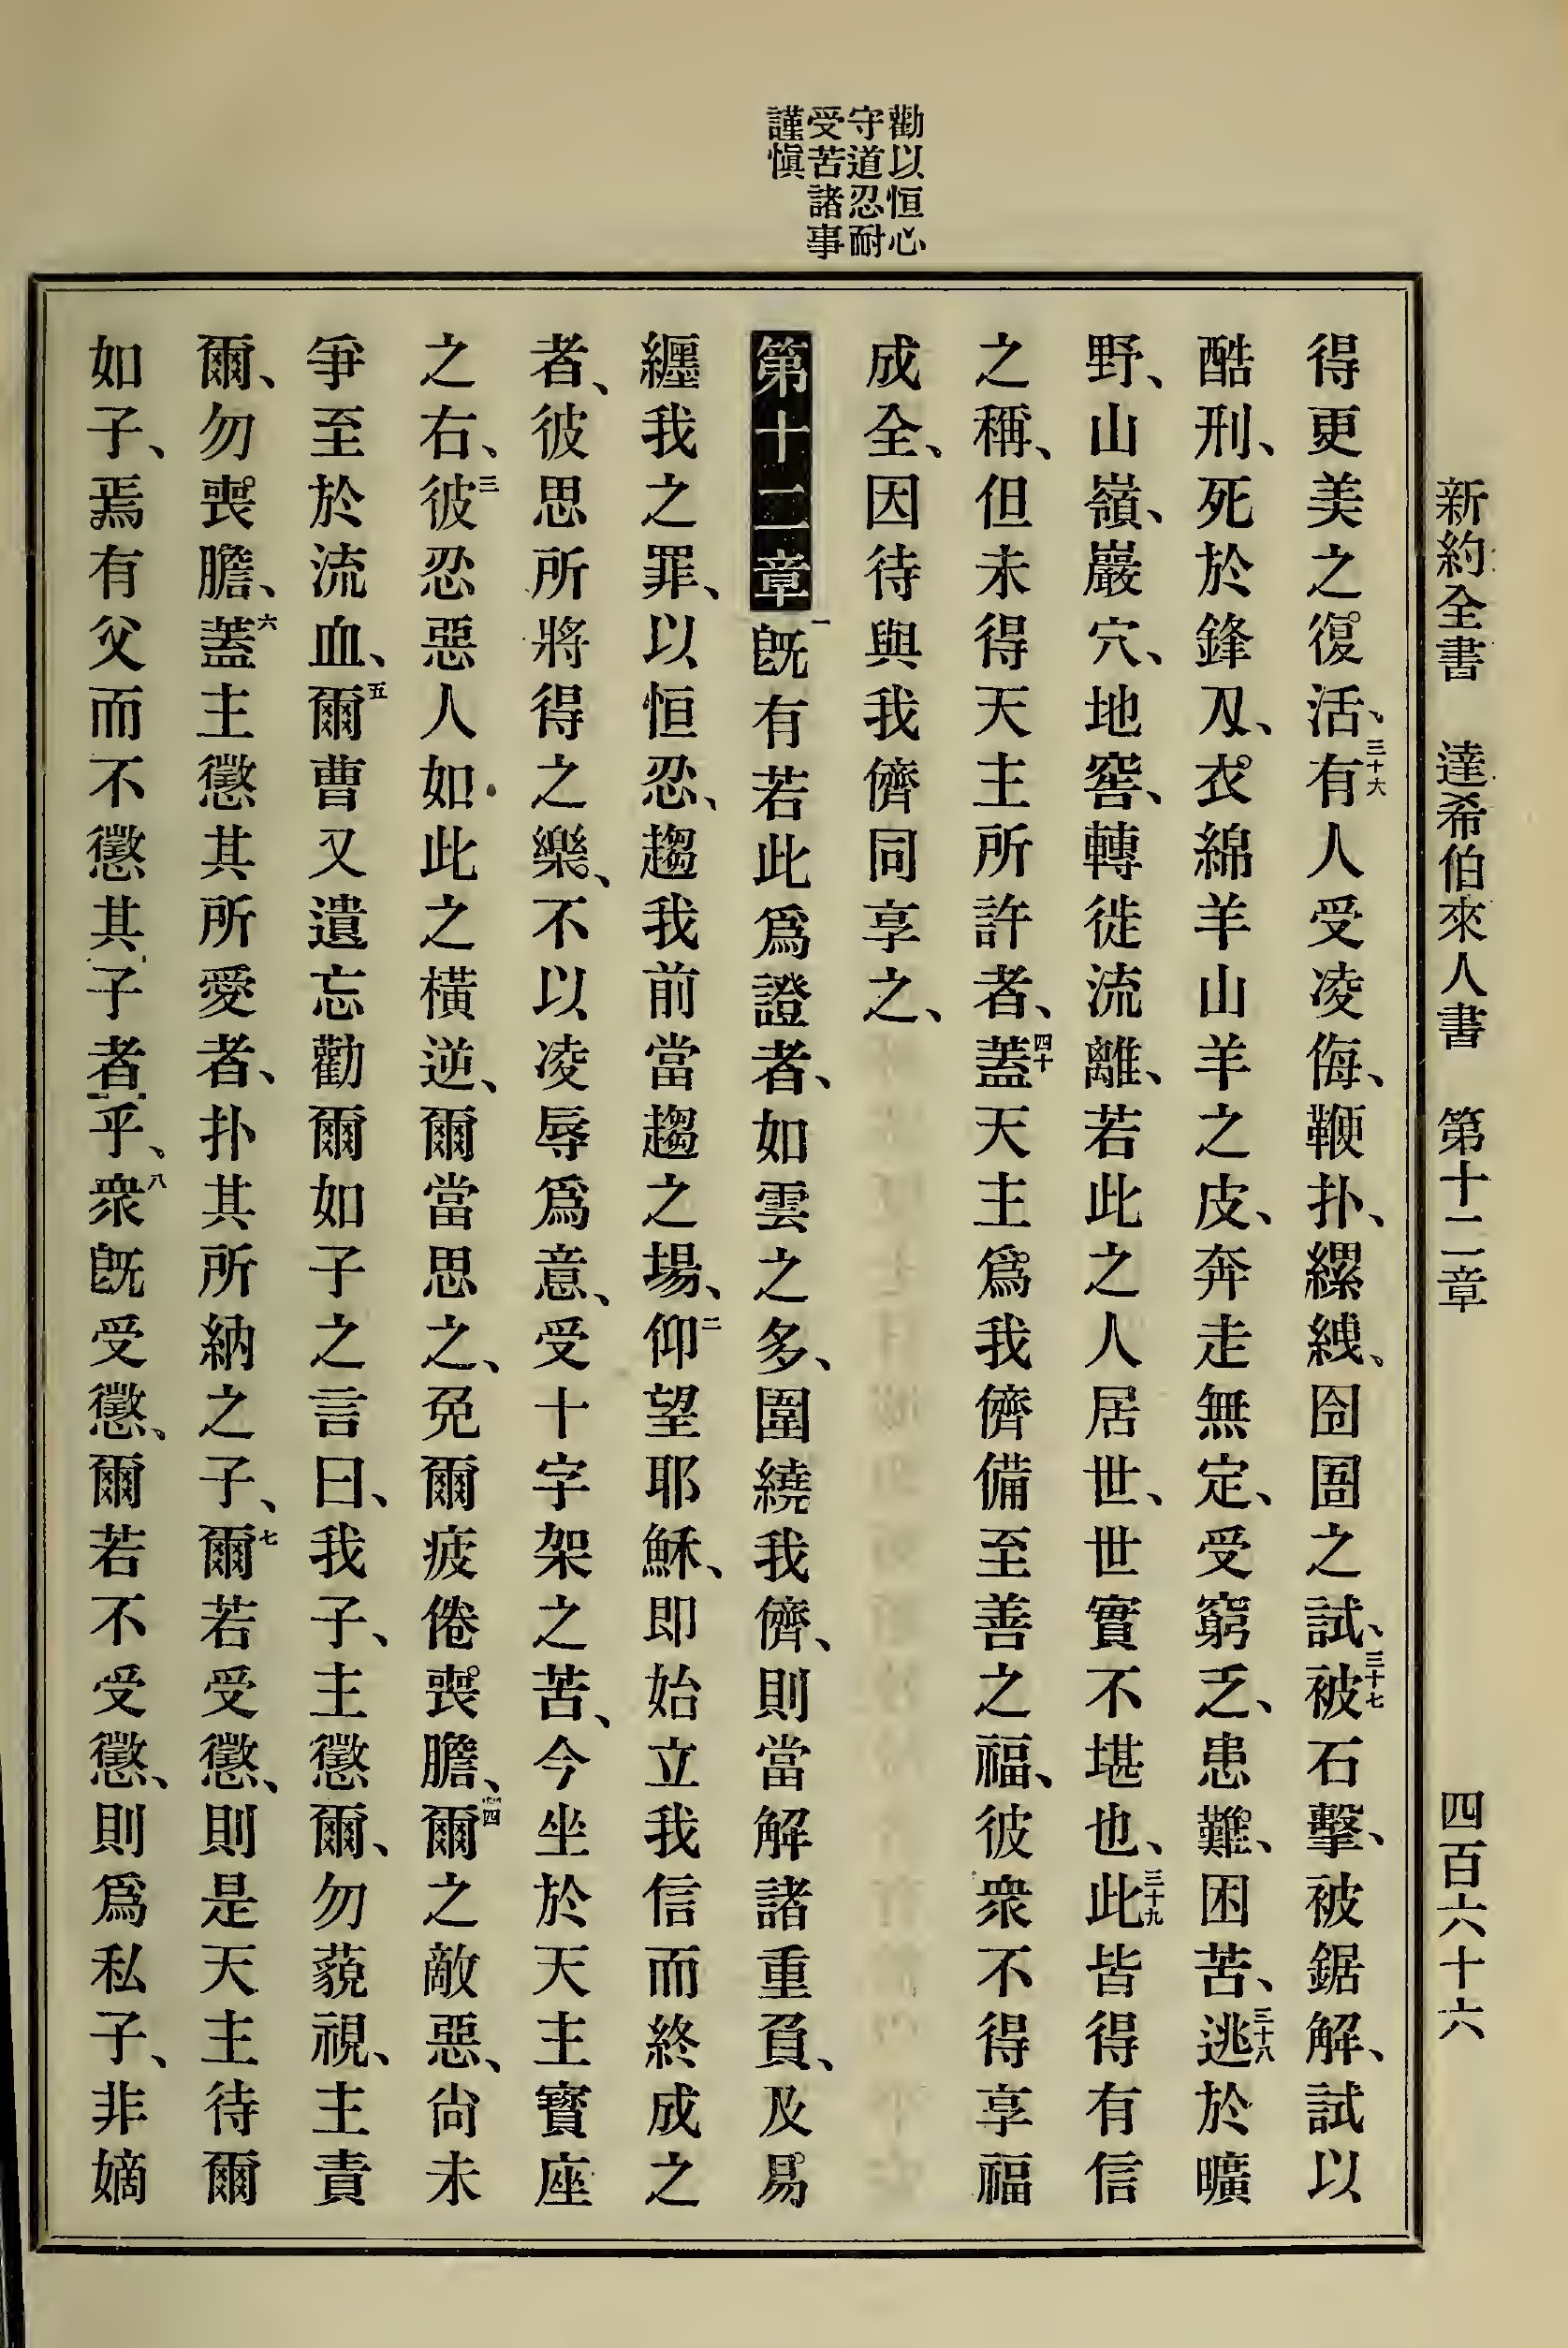 新約全書 達希伯來人書 第十二章 四百六十六
勸以恒心
守道忍耐
受苦諸事
謹愼
得更美之復活、三十六有人受凌侮、鞭扑、縲絏、囹圄之試、三十七被石擊、被鋸解、試以
酷刑、死於鋒刄、衣綿羊山羊之皮、奔走無定、受窮乏、患難、困苦、三十八逃於曠
野、山嶺、巖穴、地窖、轉徙流離、若此之人居世、世實不堪也、三十九此皆得有信
之稱、但未得天主所許者、四十蓋天主爲我儕備至善之福、彼衆不得享福
成全、因待與我儕同享之、
第十二章 一旣有若此爲證者、如雲之多、圍繞我儕、則當解諸重負、及易
纒我之罪、以恒忍、趨我前當趨之場、二仰望耶穌、即始立我信而終成之
者、彼思所將得之樂、不以凌辱爲意、受十字架之苦、今坐於天主寳座
之右、三彼忍惡人如此之橫逆、爾當思之、免爾疲倦喪膽、四爾之敵惡、尙未
爭至於流血、五爾曹又遺忘勸爾如子之言曰、我子、主懲爾、勿藐視、主責
爾、勿喪膽、六蓋主懲其所愛者、扑其所納之子、七爾若受懲、則是天主待爾
如子、焉有父而不懲其子者乎、八衆旣受懲、爾若不受懲、則爲私子、非嫡